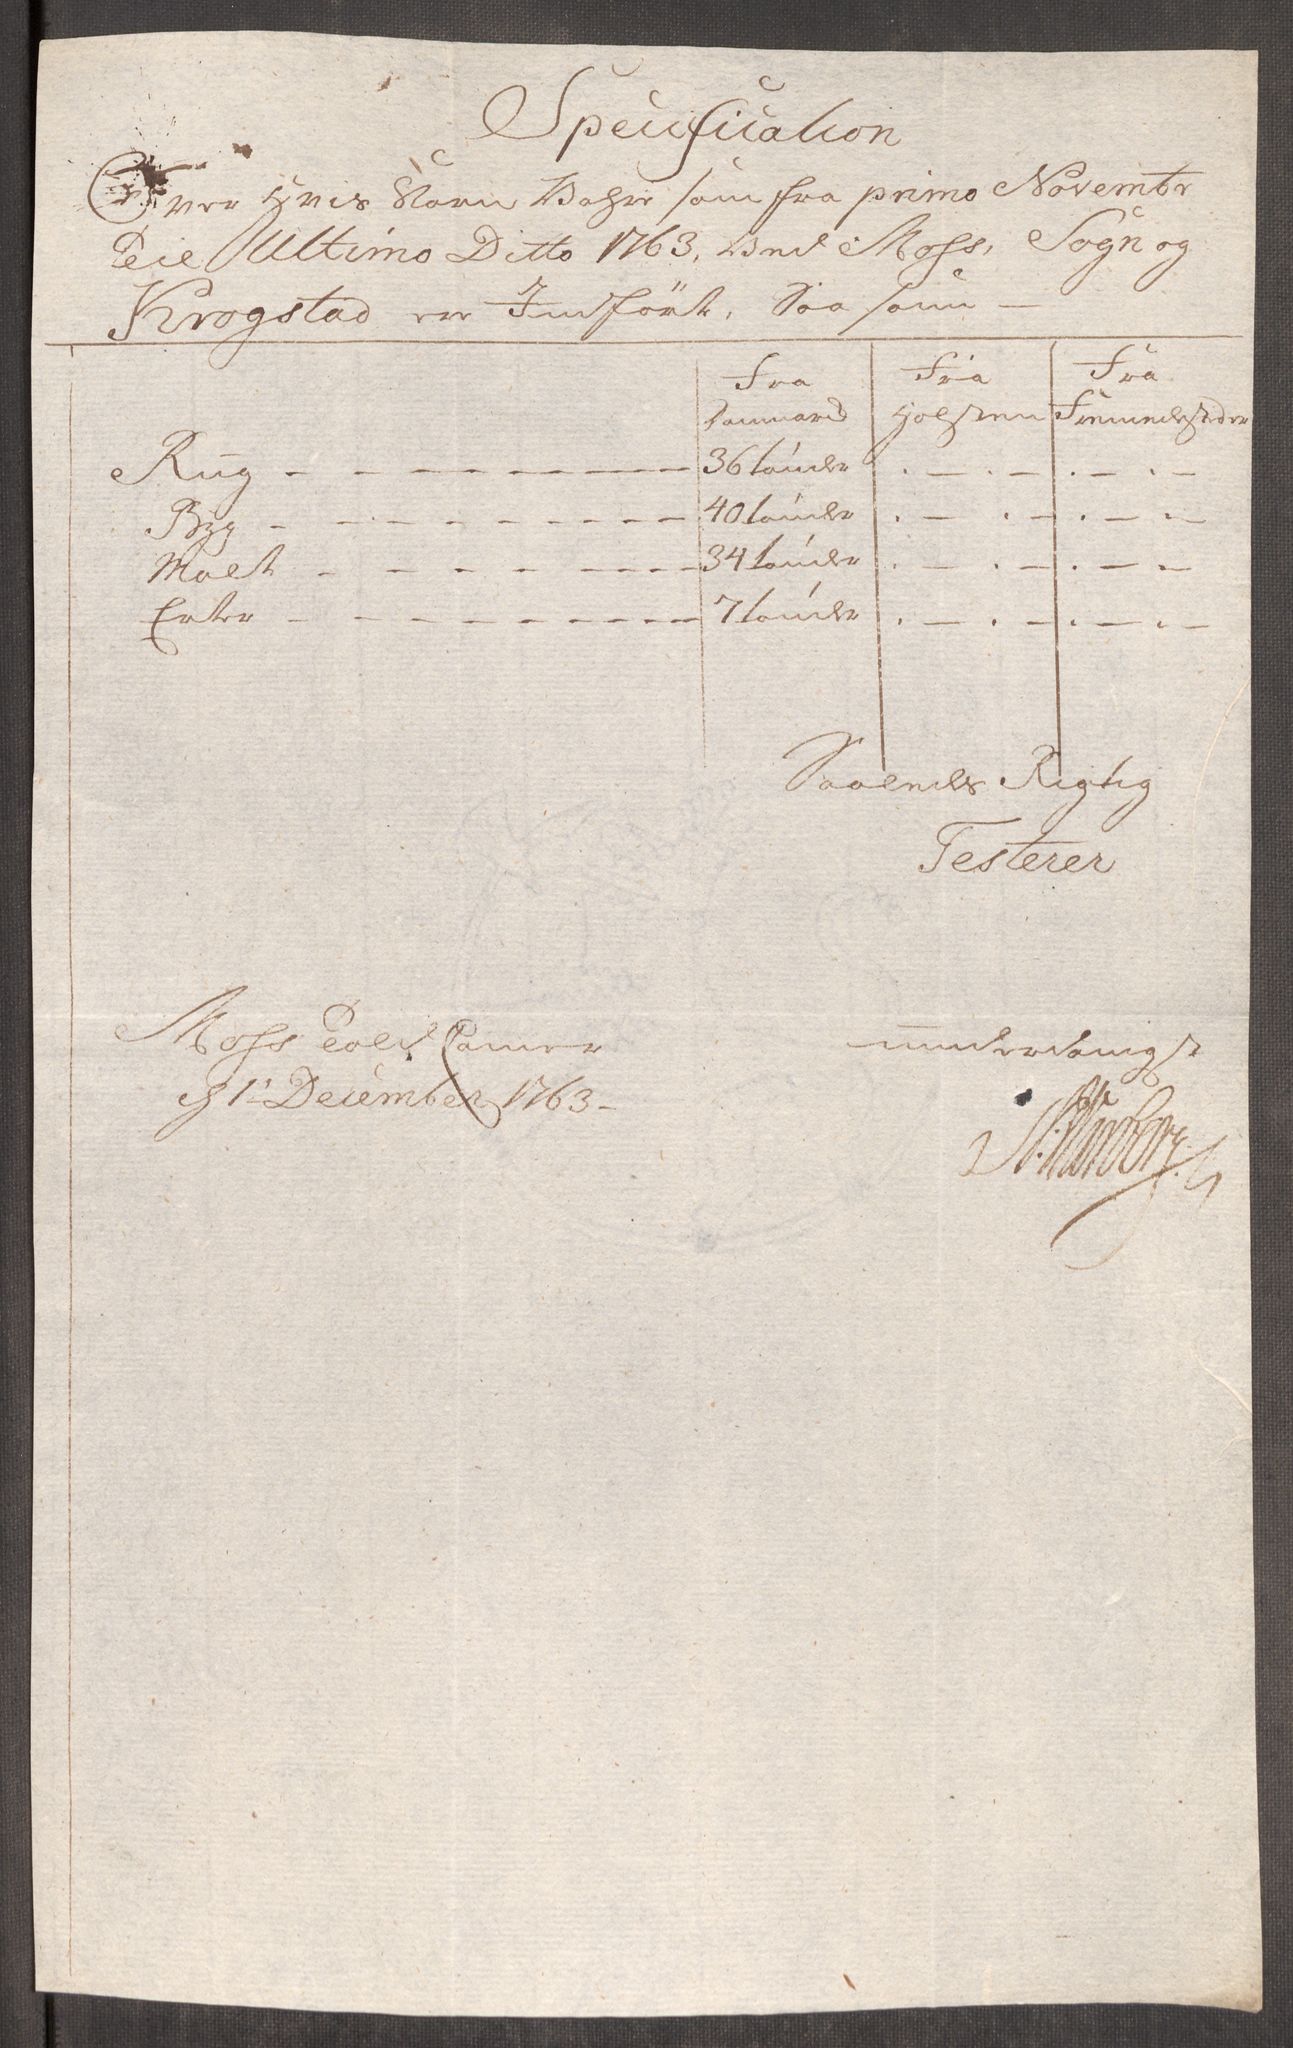 Specification
Over Hvis Korn Vahre som fra primo Novembr
Til Ultimo Ditto 1763, Ved Moss, Sogn og
Krogstad er Indført, Saa som —
Fra Danmark Fra Holsten Fra Fremmede stæder
Rug — 36 tønder . — . — . — . —
Byg — 40 tønder . — . — . — . —
Malt — 34 tønder . — . — . — . —
Erter — 7 tønder . — . — . — . —
Saaledes Rigtig
Testerer
Moss Told Camer
d 1 December 1763 –
underdanigst